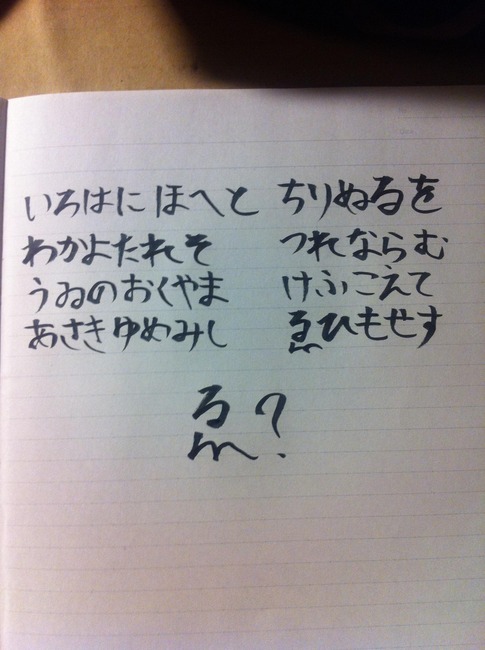 いろはにほへと ちりぬるを
わかよたれそ つれならむ
うゐのおくやま けふこえて
あさきゆめみし ゑひもせす
ゑ?